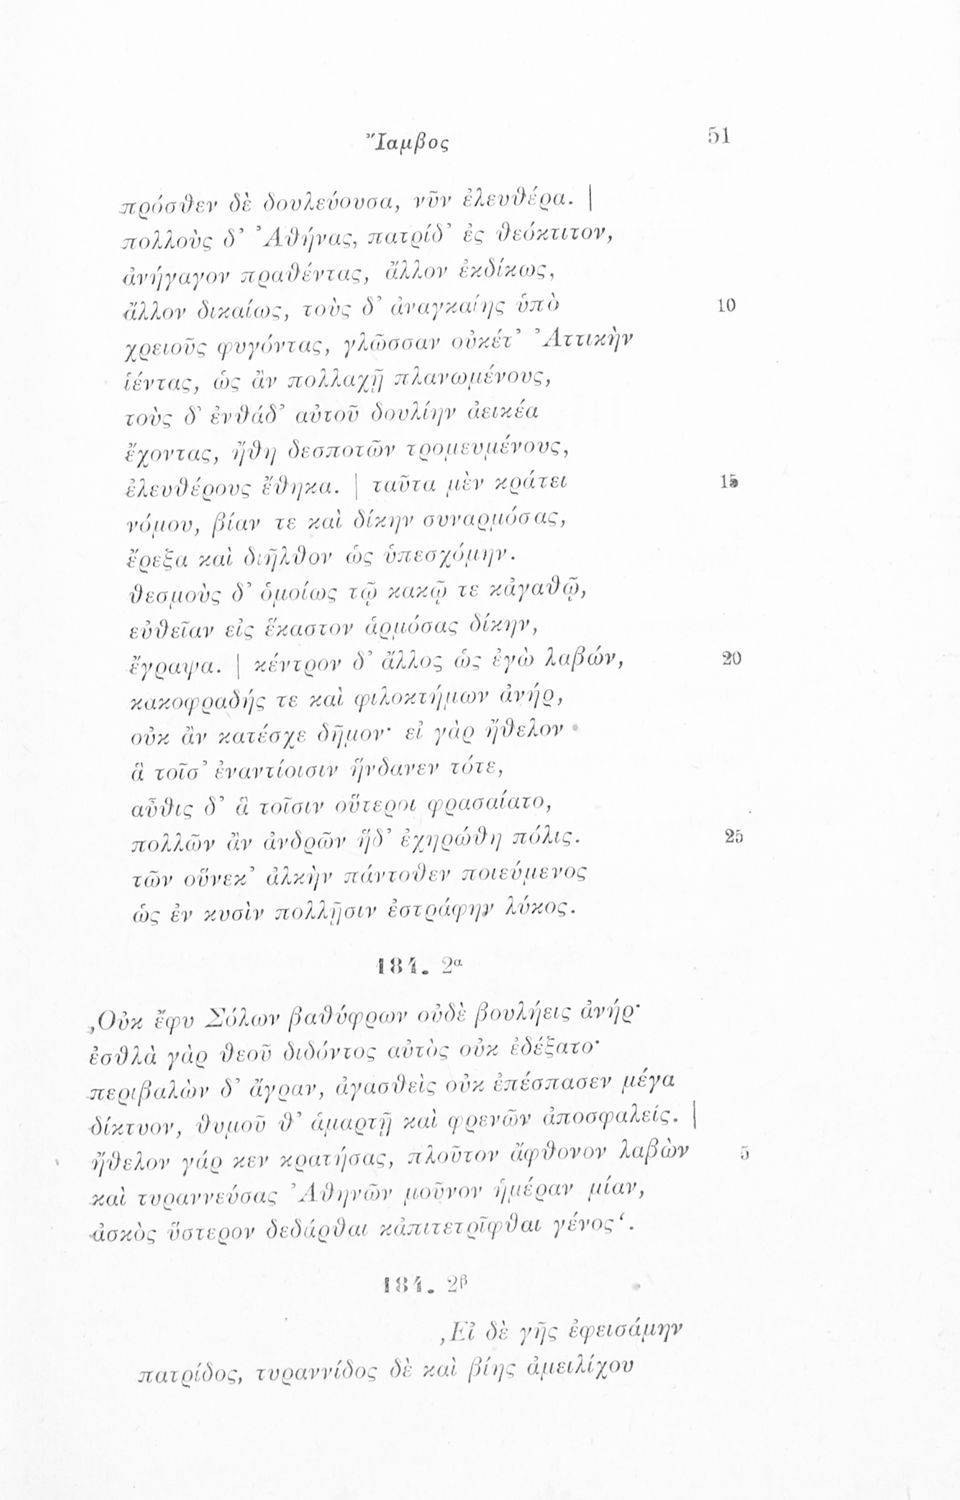 Ἴαμβος 51
πρόσθεν δὲ δουλεύουσα, νῦν ἐλευθέρα. |
πολλοὺς δ’ Ἀθήνας, πατρίδ’ ἐς θεόκτιτον,
ἀνήγαγον πραθέντας, ἄλλον ἐκδίκως,
ἄλλον δικαίως, τοὺς δ’ ἀναγκαίης ὑπὸ 10
χρειοῦς φυγόντας, γλῶσσαν οὐκέτ’ Ἀττικὴν
ἱέντας, ὡς ἂν πολλαχῇ πλανωμένους,
τοὺς δ’ ἐνθάδ’ αὐτοῦ δουλίην ἀεικέα
ἔχοντας, ἤθη δεσποτῶν τρομευμένους,
ἐλευθέρους ἔθηκα. | ταῦτα μὲν κράτει 15
νόμου, βίαν τε καὶ δίκην συναρμόσας,
ἔρεξα καὶ διῆλθον ὡς ὑπεσχόμην.
θεσμοὺς δ’ ὁμοίως τῷ κακῷ τε κἀγαθῷ,
εὐθεῖαν εἰς ἕκαστον ἁρμόσας δίκην,
ἔγραψα. | κέντρον δ’ ἄλλος ὡς ἐγὼ λαβών, 20
κακοφραδής τε καὶ φιλοκτήμων ἀνήρ,
οὐκ ἂν κατέσχε δῆμον· εἰ γὰρ ἤθελον
ἃ τοῖσ’ ἐναντίοισιν ἥνδανεν τότε,
αὖθις δ’ ἃ τοῖσιν οὕτεροι φρασαίατο,
πολλῶν ἂν ἀνδρῶν ἥδ’ ἐχηρώθη πόλις. 25
τῶν οὕνεκ’ ἀλκὴν πάντοθεν ποιεύμενος
ὡς ἐν κυσὶν πολλῇσιν ἐστράφην λύκος.
184. 2α
‚Οὐκ ἔφυ Σόλων βαθύφρων οὐδὲ βουλήεις ἀνήρ·
ἐσθλὰ γὰρ θεοῦ διδόντος αὐτὸς οὐκ ἐδέξατο·
περιβαλὼν δ’ ἄγραν, ἀγασθεὶς οὐκ ἐπέσπασεν μέγα
δίκτυον, θυμοῦ θ’ ἁμαρτῇ καὶ φρενῶν ἀποσφαλείς. |
ἤθελον γάρ κεν κρατήσας, πλοῦτον ἄφθονον λαβὼν 5
καὶ τυραννεύσας Ἀθηνῶν μοῦνον ἡμέραν μίαν,
ἀσκὸς ὕστερον δεδάρθαι κἀπιτετρῖφθαι γένος‘.
184. 2β
‚Εἰ δὲ γῆς ἐφεισάμην
πατρίδος, τυραννίδος δὲ καὶ βίης ἀμειλίχου